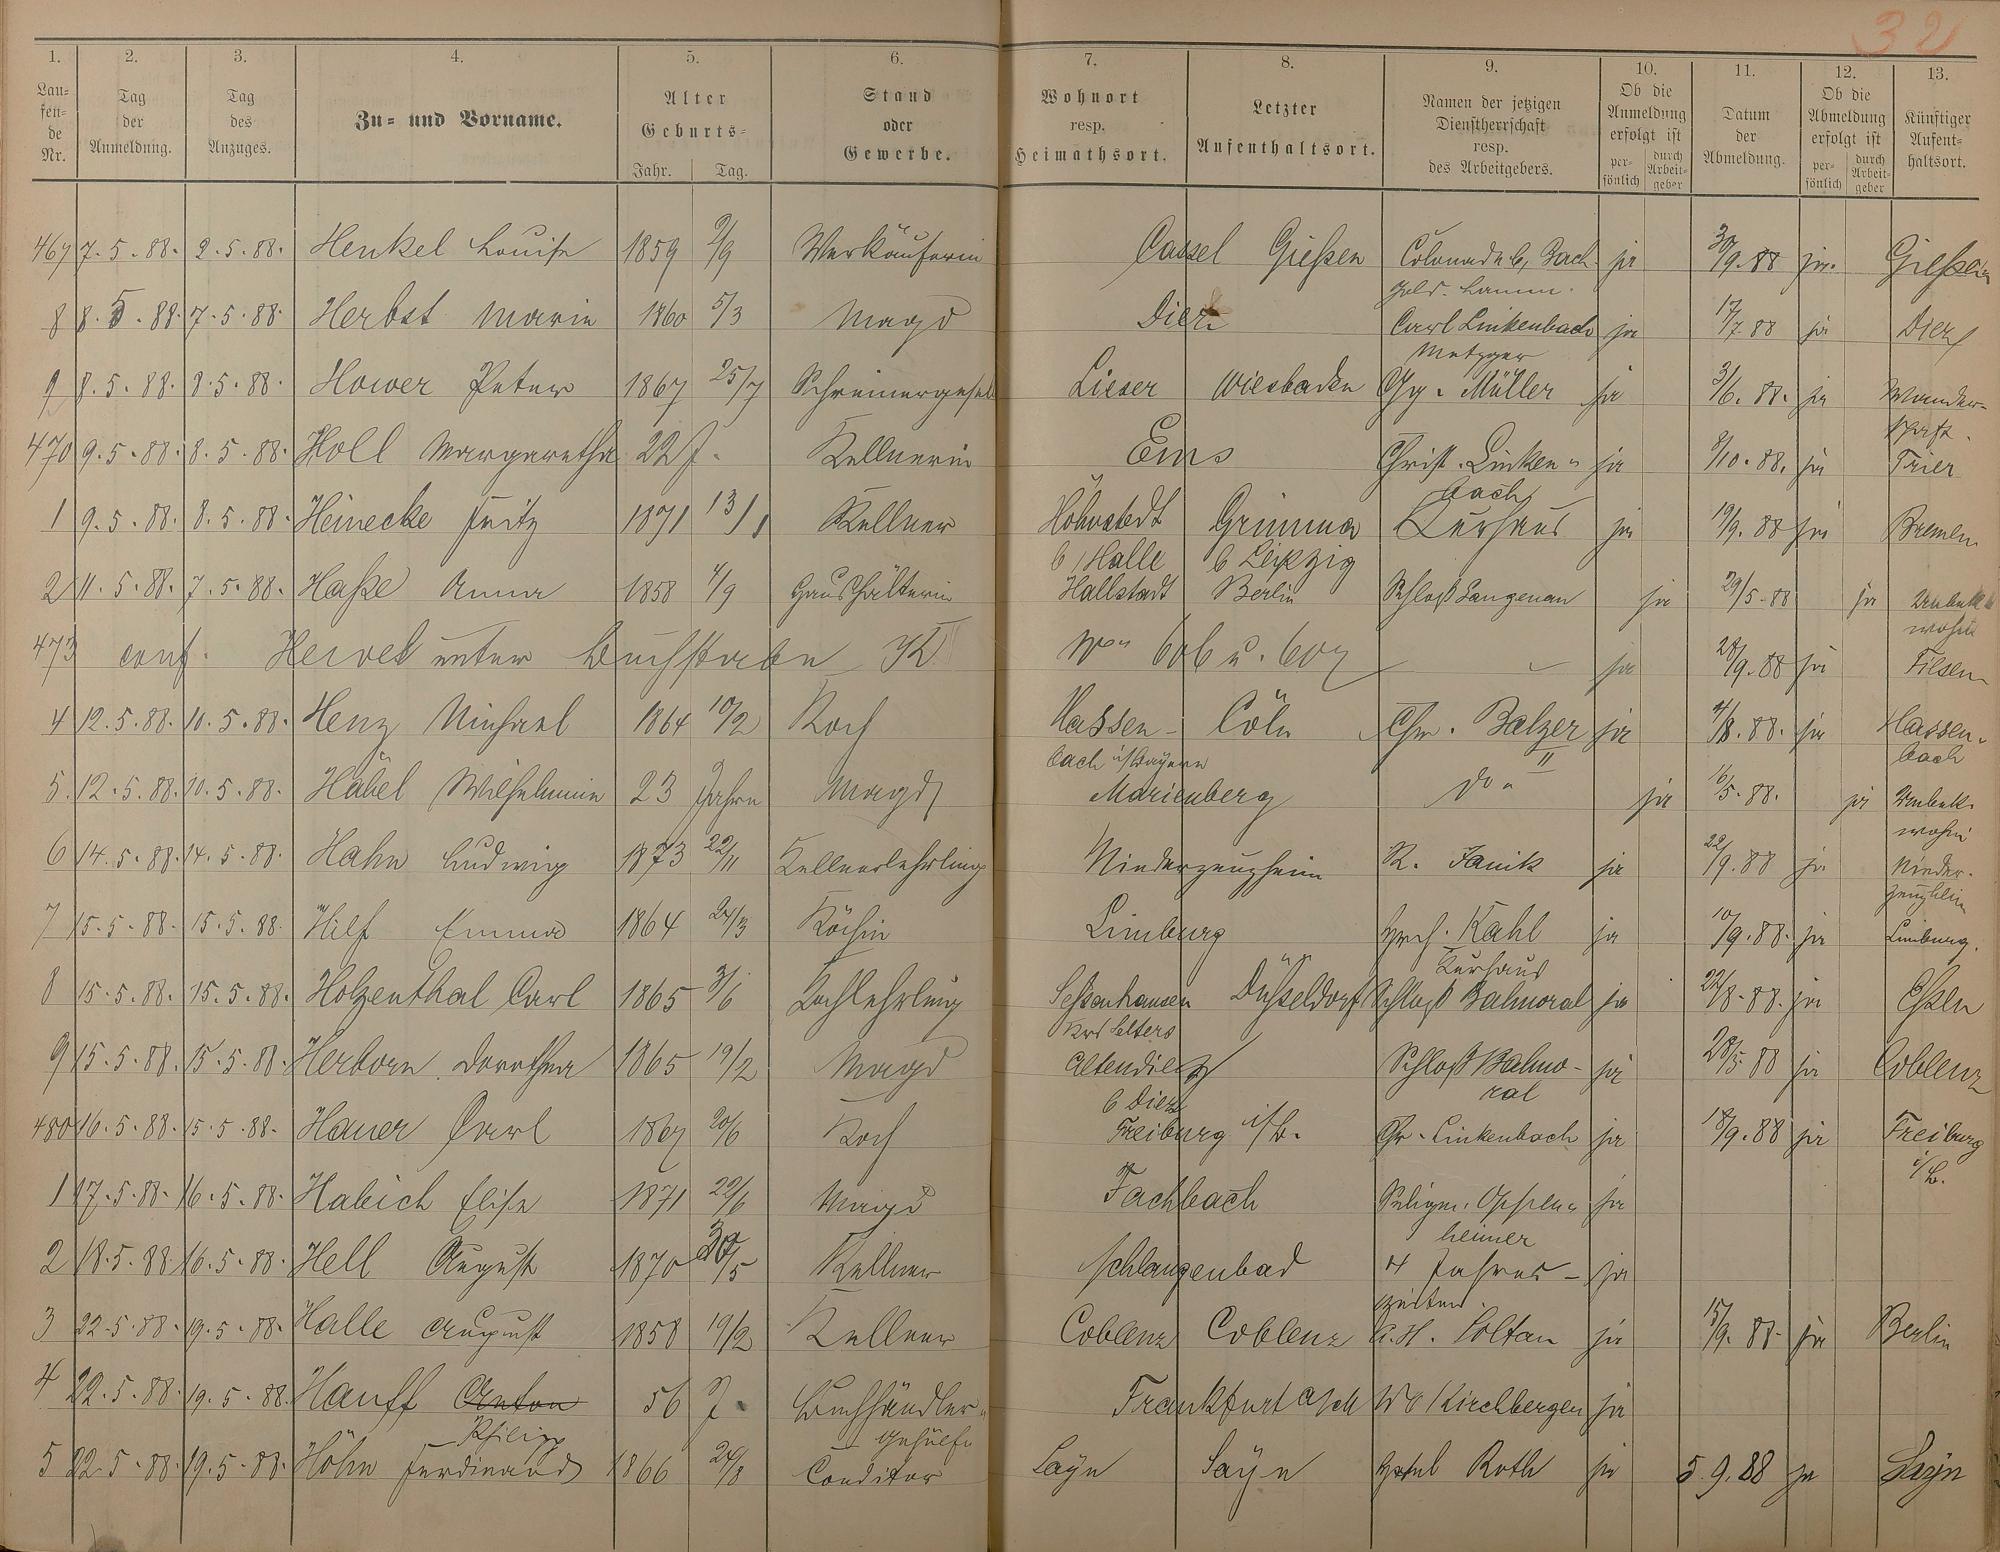 32
1. 2. 3. 4. 5. 6. 7. 8. 9. 10. 11. 12. 13.
Lau-
fen-
de
Nr.
Tag
der
Anmeldung.
Tag
des
Anzuges.
Zu- und Vorname.
Alter
Geburts-
Jahr. Tag.
Stand
oder
Gewerbe.
Wohnort
resp.
Heimathsort.
Letzter
Aufenthaltsort.
Namen der jetzigen
Dienstherrschaft
resp.
des Arbeitgebers.
Ob die
Anmeldung
erfolgt ist
per-
sönlich
durch
Arbeit-
geber
Datum
der
Abmeldung.
Ob die
Abmeldung
erfolgt ist
per-
sönlich
durch
Arbeit-
geber
Künftiger
Aufent-
haltsort.
467 7.5.88. 2.5.88. Henkel Louise 1859 2/9 Verkäuferin Cassel Gießen Colonade 6, Bach ja 30/9.88 ja. Gießen
Gold. Lamm.
8 8.5.88. 7.5.88. Herbst Marie 1860 5/3 Magd Diez Carl Linkenbach ja 17/7 88 ja Diez
Metzger
9 8.5.88. 8.5.88. Hower Peter 1867 25/7 Schreinergesell Lieser Wiesbaden Gg. Müller ja 3/6.88. ja Wander-
schaft.
470 9.5.88. 8.5.88. Holl Margaretha 22 J. Kellnerin Ems Christ. Linken- ja 8/10.88. ja Trier
bach
1 9.5.88. 8.5.88. Heinecke Fritz 1871 13/1 Kellner Höhnstedt Grimma Kurhaus ja 19/9.88 ja Bremen
b/Halle b Leipzig
2 11.5.88. 7.5.88. Haße Anna 1858 4/9 Haushälterin Hallstadt Berlin Schloß Langenau ja 29/5.88 ja Unbekt
wohin
473 conf. Hervet unter Buchstabe No 606 u. 607 ja 28/9.88 ja Filsen
4 12.5.88. 10.5.88. Henz Michael 1864 10/2 Koch Hassen- Cöln Chr. Balzer ja 4/8.88. ja Hassen-
bach i/Bayern II bach
5. 12.5.88. 10.5.88. Häbel Wilhelmine 23 Jahre Magd Marienberg do ja 16/5.88. ja Unbekt.
wohin
6 14.5.88. 14.5.88. Hahn Ludwig 1873 22/11 Kellnerlehrling Niederzeuzheim R. Janik ja 22/9.88 ja Nieder-
zeuzheim
7 15.5.88. 15.5.88. Hilf Emma 1864 24/3 Köchin Limburg Hrch. Kahl ja 10/9.88. ja Limburg.
Kurhaus
8 15.5.88. 15.5.88. Holzenthal Carl 1865 3/6 Kochlehrling Sessenhausen Düsseldorf Schloß Balmoral ja 22/8.88. ja Essen
Krs Selters
9 15.5.88. 15.5.88. Herborn Dorothea 1865 19/2 Magd Altendiez Schloß Balmo- ja 28/5 88 ja Coblenz
b Diez ral
480 16.5.88. 15.5.88. Hauer Carl 1867 20/6 Koch Freiburg i/B. Chr. Linkenbach ja 18/9.88 ja Freiburg
i/B.
1 17.5.88. 16.5.88. Habich Elise 1871 22/6 Magd Fachbach Seligm. Oppen- ja
heimer
2 18.5.88. 16.5.88. Hell August 1870 30/5 Kellner Schlangenbad 4 Jahres- ja
zeiten
3 22.5.88. 19.5.88. Halle August 1858 19/2 Kellner Coblenz Coblenz A.H. Soltau ja 15/9.88. ja Berlin
4 22.5.88. 19.5.88. Hauff Anton 56 J. Buchhändler- Frankfurt a/M Ww Kirchberger ja
Philipp gehülfe
5 22.5.88. 19.5.88. Höhn Ferdinand 1866 24/8 Conditor Sayn Sayn Hotel Roth ja 5.9.88 ja Sayn